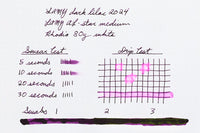 LAMY dark lilac 2024
LAMY al-star medium
Rhodia 80g white
Smear test
Drip test
5 seconds
10 seconds
20 seconds
30 seconds
Swabs 1 2 3